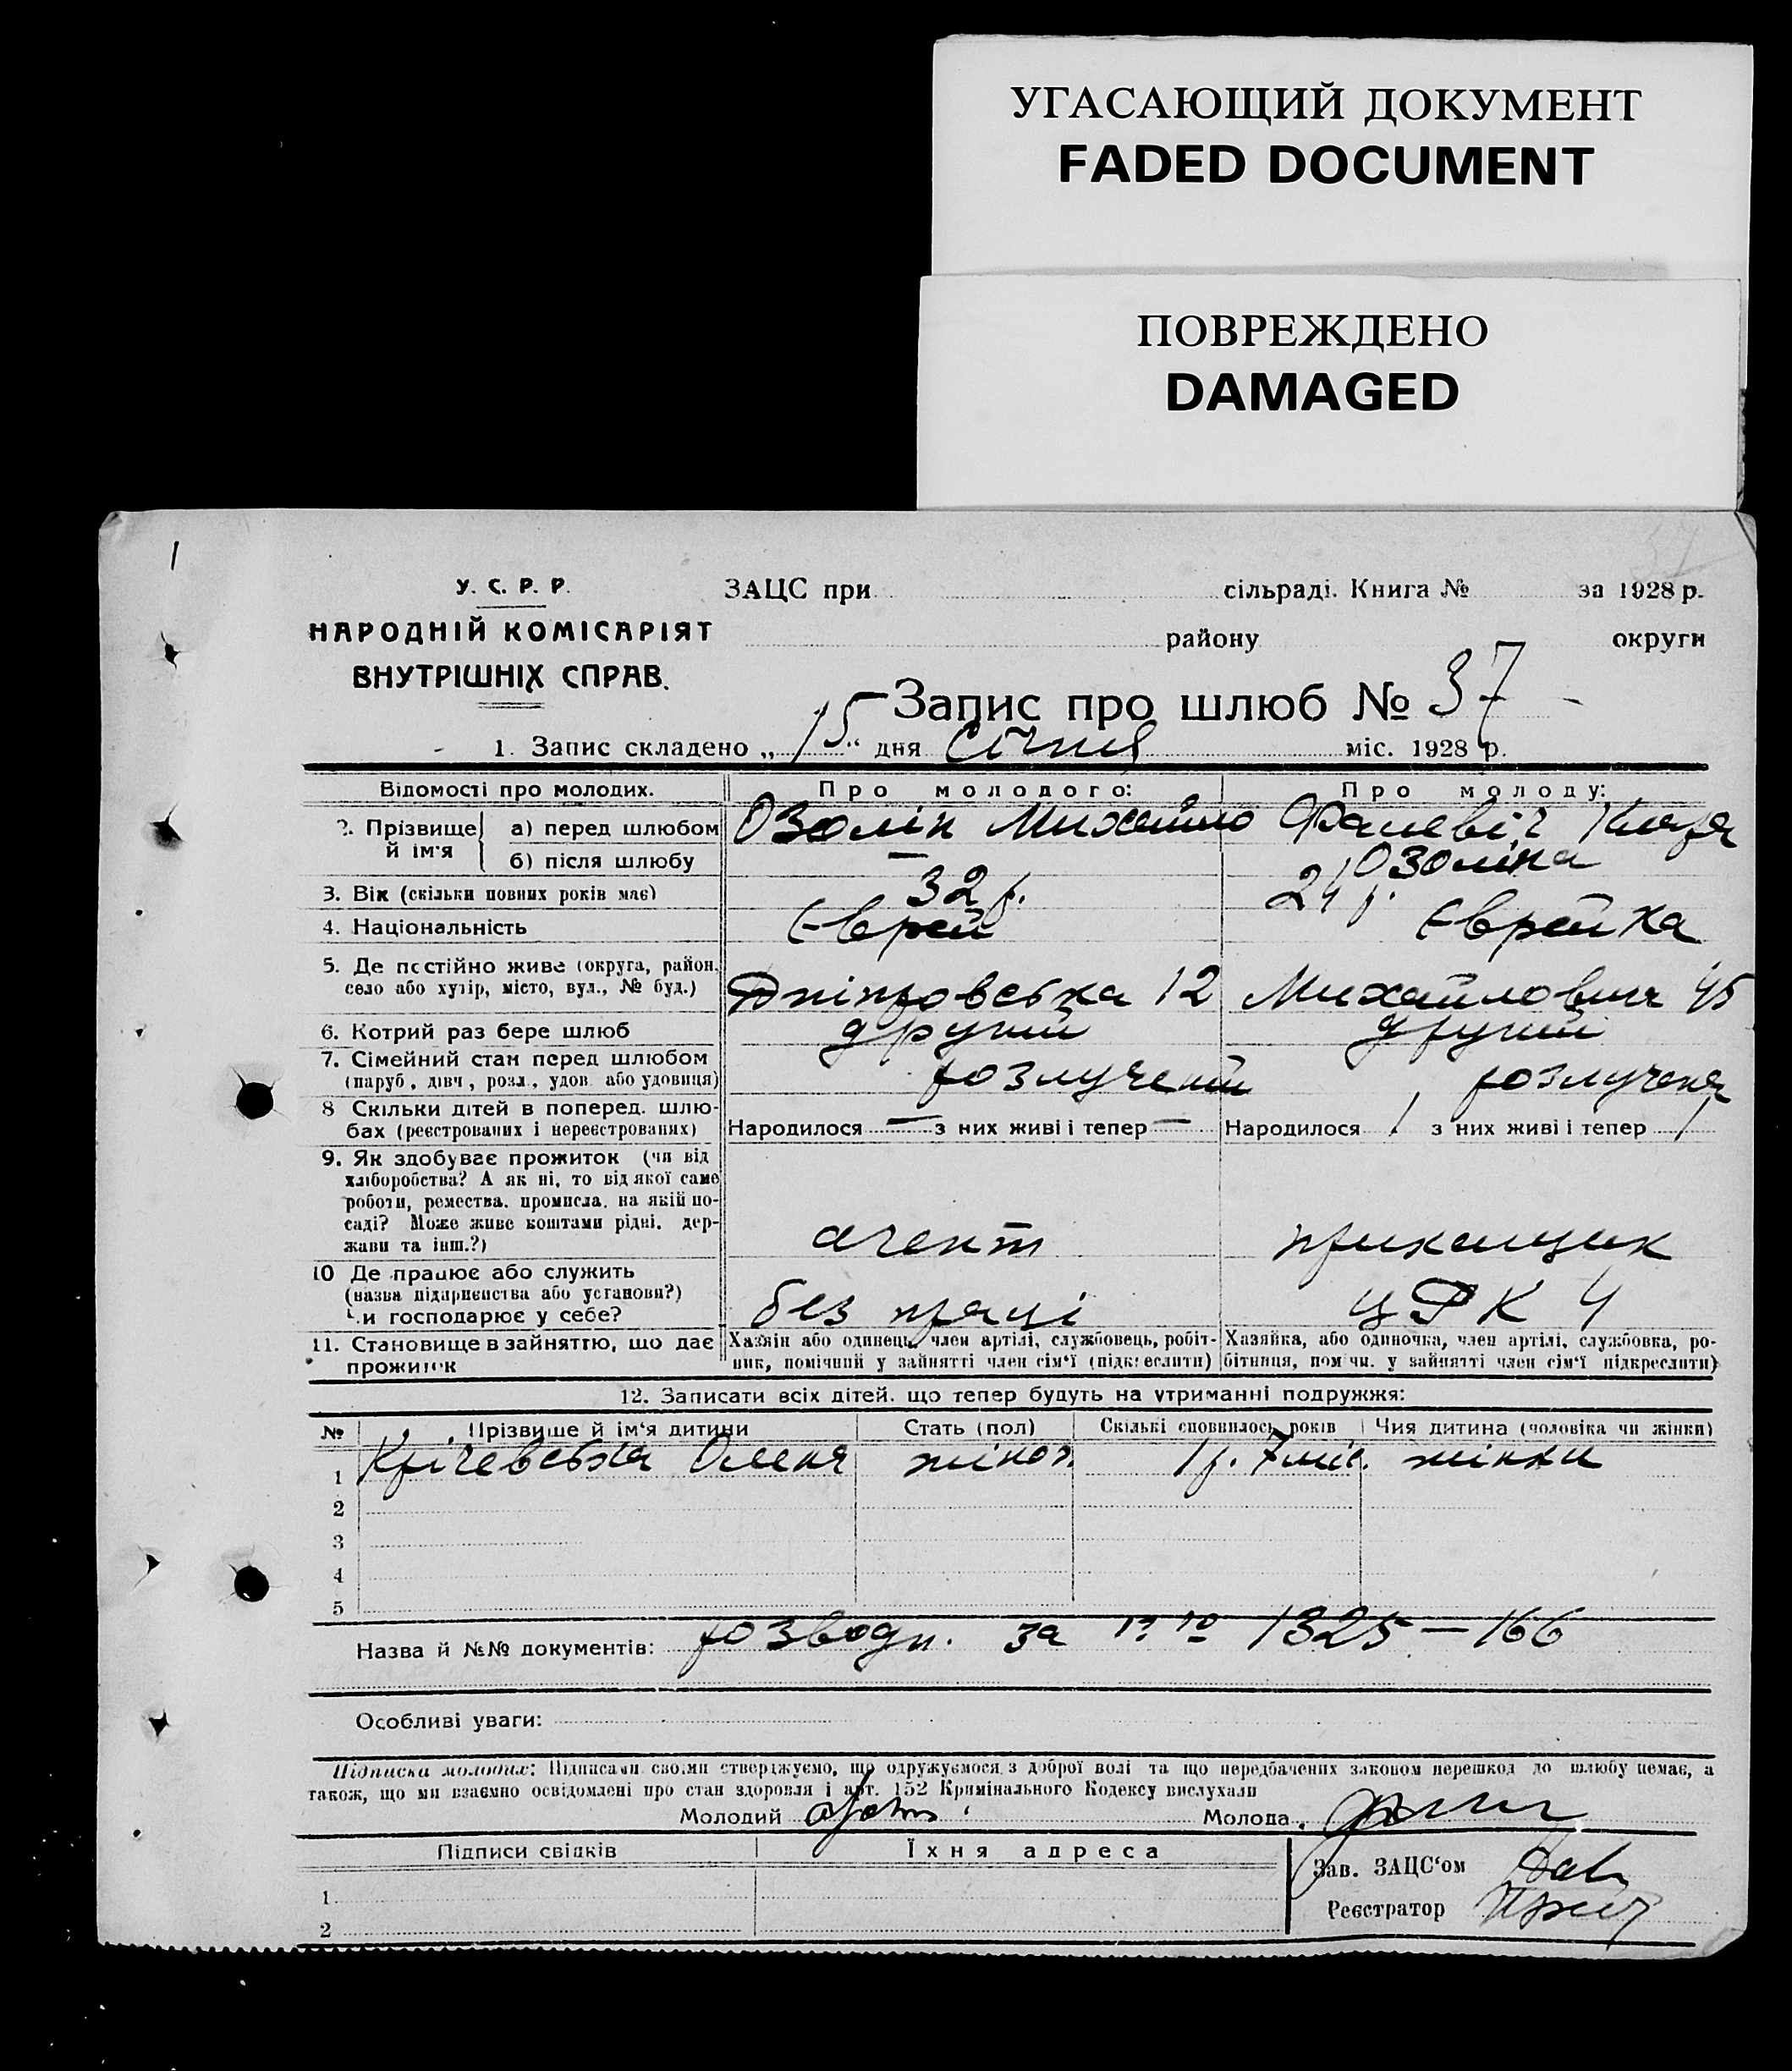 УГАСАЮЩИЙ ДОКУМЕНТ
FADED DOCUMENT
ПОВРЕЖДЕНО
DAMAGED
1
37
У. С. Р. Р.
НАРОДНІЙ КОМІСАРІЯТ
ВНУТРІШНІХ СПРАВ.
ЗАЦС при сільраді. Книга № за 1928 р.
району округи
Запис про шлюб № 37
1. Запис складено „15“ дня Січня міс. 1928 р.
Відомості про молодих. Про молодого: Про молоду:
2. Прізвище й ім'я а) перед шлюбом Озолін Михайло Фалевіч Клара
б) після шлюбу — Озоліна
3. Вік (скільки повних років має) 32 р. 24 р.
4. Національність Єврей Єврейка
5. Де постійно живе (округа, район,
село або хутір, місто, вул., № буд.) Дніпровська 12 Михайлович 45
6. Котрий раз бере шлюб другий другий
7. Сімейний стан перед шлюбом
(паруб., дівч., розл., удов. або удовиця) розлучений розлучена
8 Скільки дітей в поперед. шлю-
бах (реєстрованих і нереєстрованих) Народилося — з них живі і тепер — Народилося 1 з них живі і тепер 1
9. Як здобуває прожиток (чи від
хліборобства? А як ні, то від якої саме
роботи, ремества, промисла, на якій по-
саді? Може живе коштами рідні, дер-
жави та інш.?) агент прикащик
10 Де працює або служить
(назва підприємства або установи?)
Чи господарює у себе? без праці ЦРК 4
11. Становище в зайняттю, що дає
прожиток
Хазяїн або одинець, член артілі, службовець, робіт-
ник, помічний у зайнятті член сім'ї (підкреслити)
Хазяйка, або одиночка, член артілі, службовка, ро-
бітниця, пом чи. у зайнятті член сім'ї підкреслити)
12. Записати всіх дітей, що тепер будуть на утриманні подружжя:
№ Прізвище й ім'я дитини Стать (пол) Скількі сповнилось років Чия дитина (чоловіка чи жінки)
1 Крічевська Олена жіноч. 1 р. 7 міс. жінки
2
3
4
5
Назва й №№ документів: розводн. за №№ 1325 — 166
Особливі уваги:
Підписка молодих: Підписами своїми стверджуємо, що одружуємося з доброї волі та що передбачених законом перешкод до шлюбу немає, а
також, що ми взаємно освідомлені про стан здоровля і арт. 152 Кримінального Кодексу вислухали
Молодий Молода
Підписи свідків Їхня адреса
Зав. ЗАЦС'ом
Реєстратор
1
2